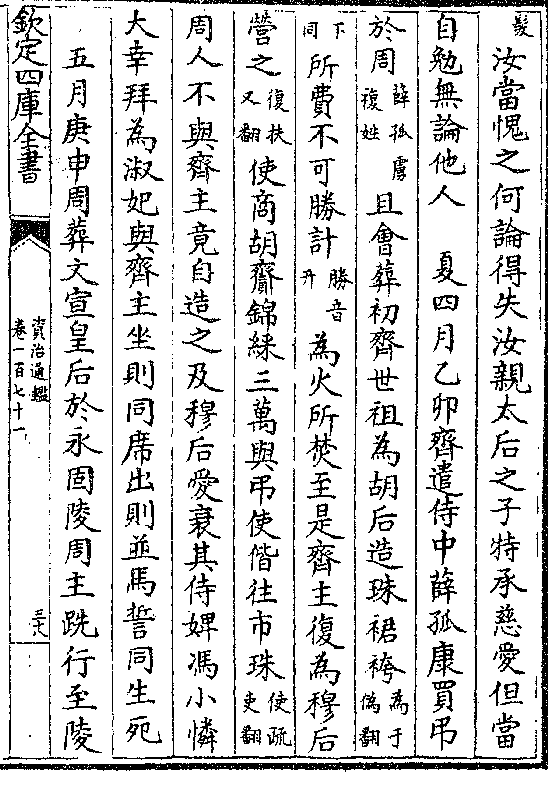 髮汝當愧之何論得失汝親太后之子特承慈愛但當
自勉無論他人　夏四月乙卯齊遣侍中薛孤康買弔
於周薛孤虜複姓且會葬初齊世祖為胡后造珠裙袴為于偽翻
下同所費不可勝計勝音升為火所焚至是齊主復為穆后
營之復扶又翻使商胡齎錦綵三萬與弔使偕往市珠使疏吏翻
周人不與齊主竟自造之及穆后愛衰其侍婢馮小憐
大幸拜為淑妃與齊主坐則同席出則並馬誓同生死
五月庚申周葬文宣皇后於永固陵周主跣行至陵
欽定四庫全書
資治通鑑
卷一百七十一
三六